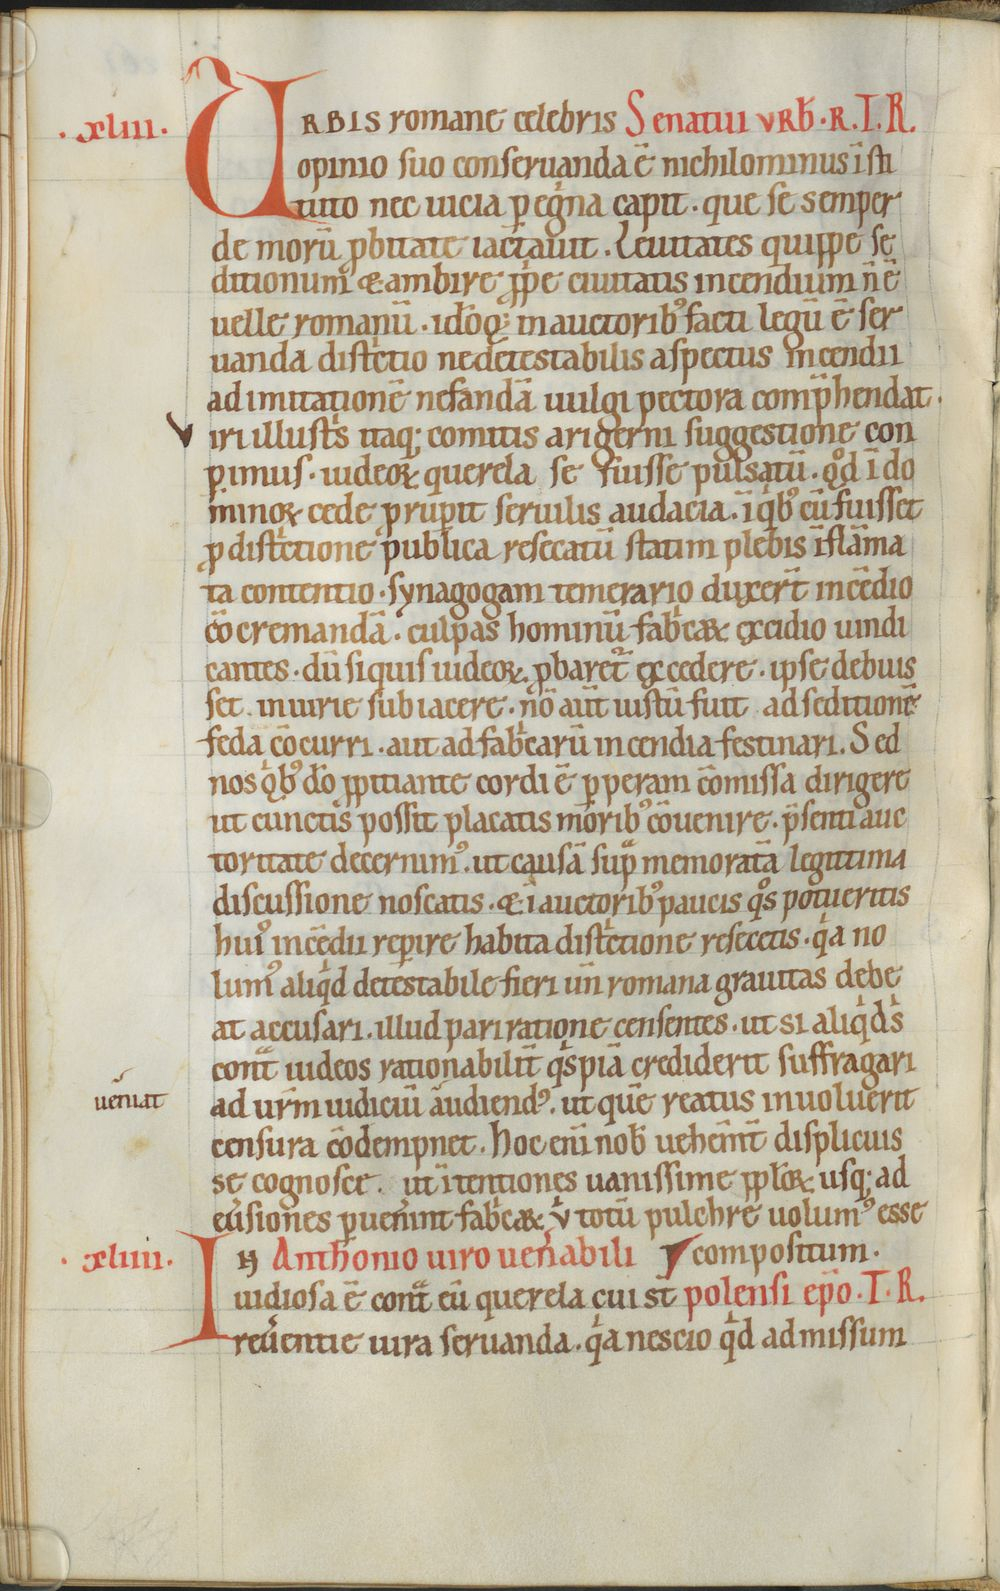 .xliii. URBIS romane celebris Senatui vRƀ.R.T.R.
opinio suo conseruanda ē nichilominus īsti
tuto nec uicia pegͥna capit. que se semper
de morū ꝓbitate iactauit. Leuitates quippe se
ditionum & ambire ꝓpͥe ciuitatis incendium n̄ ē
uelle romanū. idōqꝫ in auctoribꝰ facti legū ē ser
uanda distͥctio ne detestabilis aspectus incendii
ad imitationē nefandā uulgi pectora comp̄hendat.
Viri illustͥs itaqꝫ comitis arigerni suggestione con
pͥmus. iudeoꝝ querela se fuisse pulsatū. qͦd ī do
minoꝝ cede ꝓrupit seruilis audacia. ī qͥbꝰ cū fuisset
ꝓ distͥctione publica resecatū statim plebis īflāma
ta contentio. synagogam temerario duxert̄ incēdio
cōcremandā. culpas hominū fabͥcaꝝ excidio uindi
cantes. dū siquis iudeoꝝ ꝓbaretᷣ excedere. ipse debuis
set iniurie subiacere. nō aūt iustū fuit ad seditionē
feda cōcurri. aut ad fabͥcarū incendia festinari. Sed
nos qͥbꝰ dō ꝓpitiante cordi ē pperam cōmissa dirigere
ut cunctis possit placatis moribꝰ cōuenire. p̄senti auc
toritate decernimꝰ. ut causā supᷓ memoratā legitima
discussione noscatis. & ī auctoribꝰ paucis qͦs potueritis
huiꝰ incēdii repire habita distͥctione resecetis. qͥa no
lumꝰ aliqͥd detestabile fieri un̄ romana grauitas debe
at accusari. illud pari ratione censentes. ut si aliqͥd sͥ
contᷓ iudeos rationabilit̄ qͥspiā crediderit suffragari
ueniat
ad ur̄m iudiciū audiendꝰ. ut quē reatus inuoluerit
censura cōdempnet. Hoc enī nob̄ uehēmt̄ displicuis
se cognosce. ut ītentiones uanissime ppl̄oꝝ usqꝫ ad
euͥsiones puenint fabͥcaꝝ v̓ totū pulchre uolumꝰ esse
.xliiii. IN Anthonio uiro uen̄abili compositum.
uidiosa ē contᷓ eū querela cui st̄ polensi ep̄o.T.R.
reuͥentie iura seruanda. qͥa nescio qͥd admissum